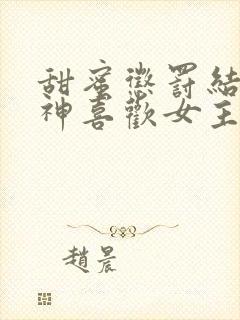 甜蜜懲罰結
神喜歡女主
趙晨